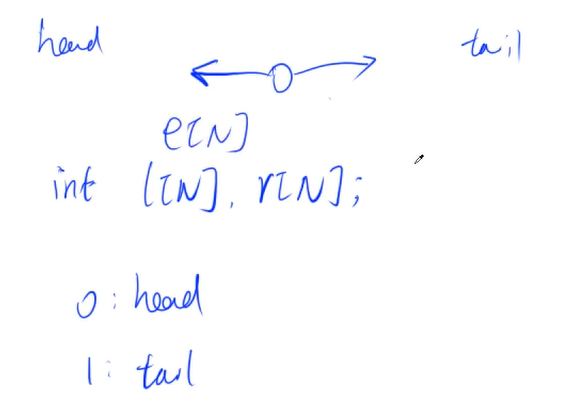 head tail
e[N]
int l[N], r[N];
0: head
1: tail